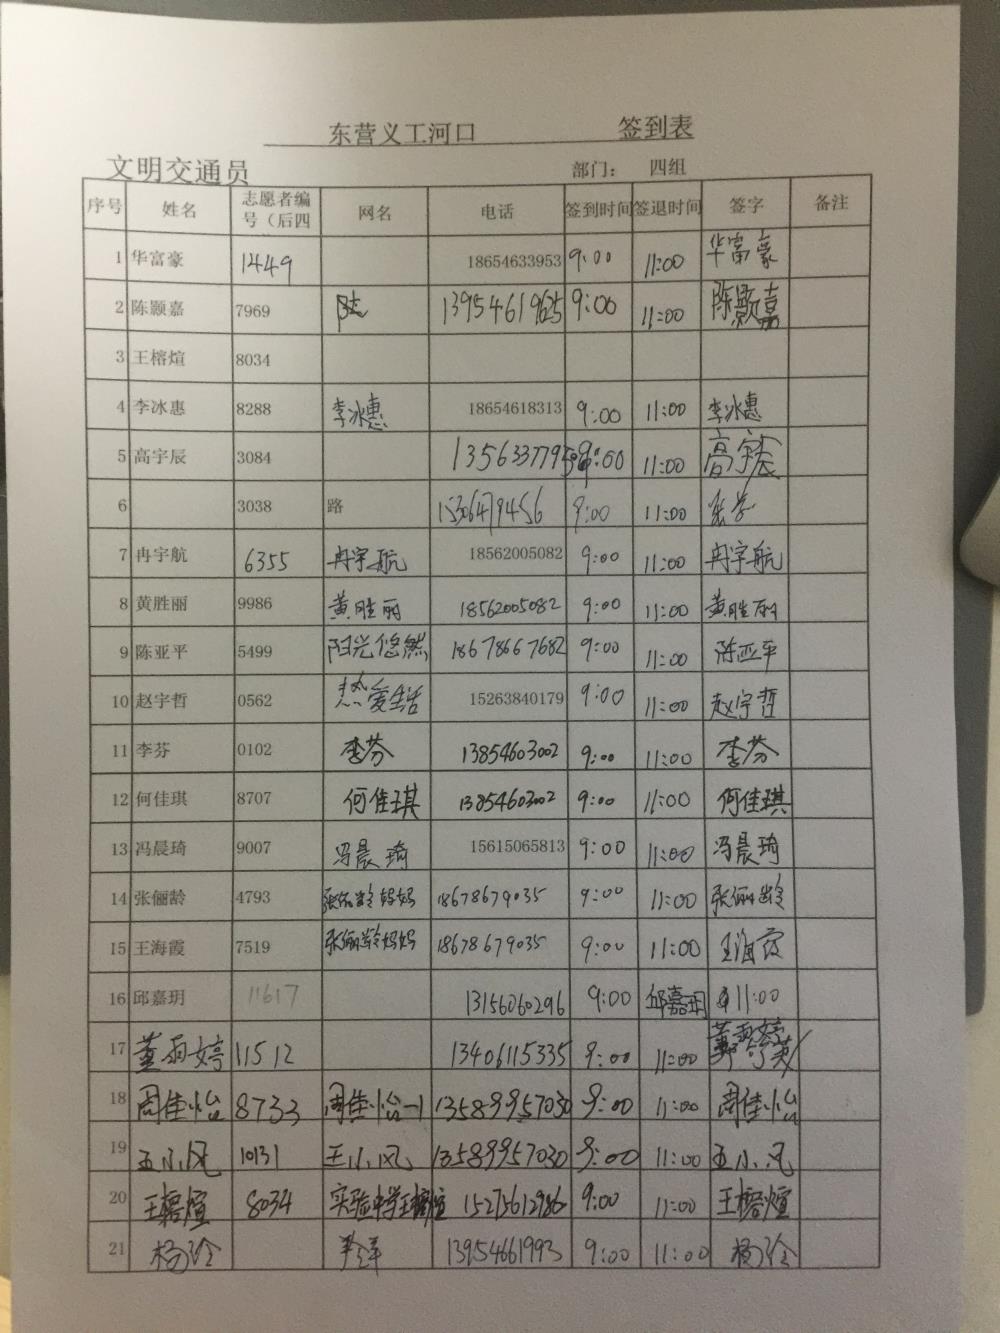 东营义工河口 签到表
文明交通员 部门： 四组
序号 姓名 志愿者编号（后四 网名 电话 签到时间 签退时间 签字 备注
1 华富豪 1449 18654633953 9:00 11:00 华富豪
2 陈颢嘉 7969 13954619625 9:00 11:00 陈颢嘉
3 王榕煊 8034
4 李冰惠 8288 李冰惠 18654618313 9:00 11:00 李冰惠
5 高宇辰 3084 9:00 11:00 高宇辰
6 3038 路 15306479456 9:00 11:00
7 冉宇航 6355 冉宇航 18562005082 9:00 11:00 冉宇航
8 黄胜丽 9986 黄胜丽 18562005082 9:00 11:00 黄胜丽
9 陈亚平 5499 阳光悠然 18678667682 9:00 11:00 陈亚平
10 赵宇哲 0562 热爱生活 15263840179 9:00 11:00 赵宇哲
11 李芬 0102 李芬 13854603002 9:00 11:00 李芬
12 何佳琪 8707 何佳琪 13854603002 9:00 11:00 何佳琪
13 冯晨琦 9007 冯晨琦 15615065813 9:00 11:00 冯晨琦
14 张俪龄 4793 张俪龄妈妈 18678679035 9:00 11:00 张俪龄
15 王海霞 7519 张俪龄妈妈 18678679035 9:00 11:00 王海霞
16 邱嘉玥 11617 13156060296 9:00 邱嘉玥 11:00
17 董雨婷 11512 13406115335 9:00 11:00 董雨婷
18 周佳怡 8733 周佳怡一1 13589957030 9:00 11:00 周佳怡
19 王小风 10131 王小风 13589957030 9:00 11:00 王小风
20 王榕煊 8034 实验中学王榕煊 15275612986 9:00 11:00 王榕煊
21 杨玲 13954661993 9:00 11:00 杨玲